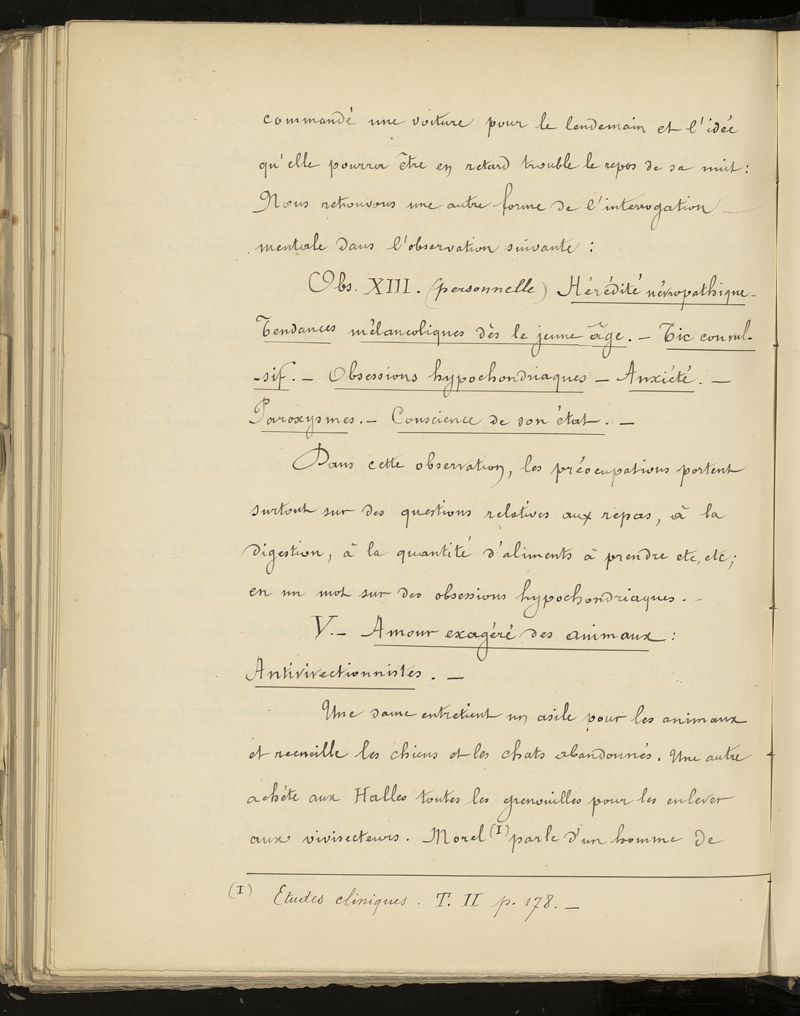 commandé une voiture pour le lendemain et l'idée
qu'elle pourra être en retard trouble le repos de sa nuit :
Nous retrouvons une autre forme de l'interrogation
mentale dans l'observation suivante :
Obs. XIII. (personnelle) Hérédité névropathique -
Tendances mélancoliques dès le jeune âge. - Tic convul-
-sif. - Obsessions hypochondriaques - Anxiété. -
Paroxysmes. - Conscience de son état. -
Dans cette observation, les préocupations portent
surtout sur des questions relatives aux repas, à la
digestion, à la quantité d'aliments à prendre etc, etc ;
en un mot sur des obsessions hypochondriaques. -
V. - Amour exagéré des animaux :
Antivivectionnistes. -
Une dame entretient un asile pour les animaux
et recueille les chiens et les chats abandonnés. Une autre
achète aux Halles toutes les grenouilles pour les enlever
aux vivisecteurs. Morel (I) parle d'un homme de
(I) Etudes cliniques. T. II p. 178. -